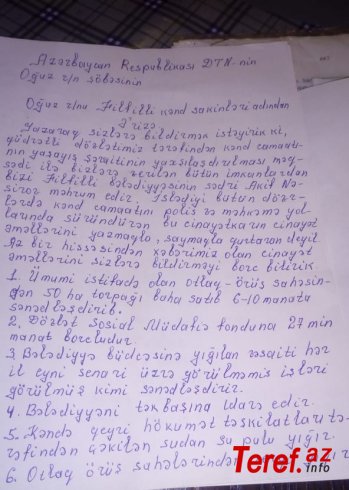 Azərbaycan Respublikası DTN-nin
Oğuz r/n şöbəsinin
Oğuz r/nu Filfilli kənd sakinləri adından
Ə'rizə
Yazaraq sizlərə bildirmək istəyirik ki,
qüdrətli dövlətimiz tərəfindən kənd camaatı-
nın yaşayış şəraitinin yaxşılaşdırılması məq-
sədi ilə bizlərə verilən bütün imkanlardan
bizi Filfilli bələdiyyəsinin sədri Akif Nə-
sirov məhrum edir. İşlədiyi bütün döv-
lərdə kənd camaatını polis və məhkəmə yol-
larında süründürən bu cinayətkarın cinayət
əməllərini yazmaqla, saymaqla qurtaran deyil.
Az bir hissəsindən xəbərimiz olan cinayət
əməllərini sizlərə bildirməyi borc bilirik.
1. Ümumi istifadə olan otlaq-örüş sahəsin-
dən 50 ha torpağı baha satıb 6-10 manata
sənədləşdirib.
2. Dövlət Sosial Müdafiə fonduna 27 min
manat borcludur.
3. Bələdiyyə büdcəsinə yığılan vəsaiti hər
il eyni senari üzrə görülməmiş işləri
görülmüş kimi sənədləşdirir.
4. Bələdiyyəni təkbaşına idarə edir.
5. Kəndə qeyri hökumət təşkilatları tə-
rəfindən çəkilən sudan su pulu yığır.
6. Otlaq örüş sahələrindən
Teref.az
info